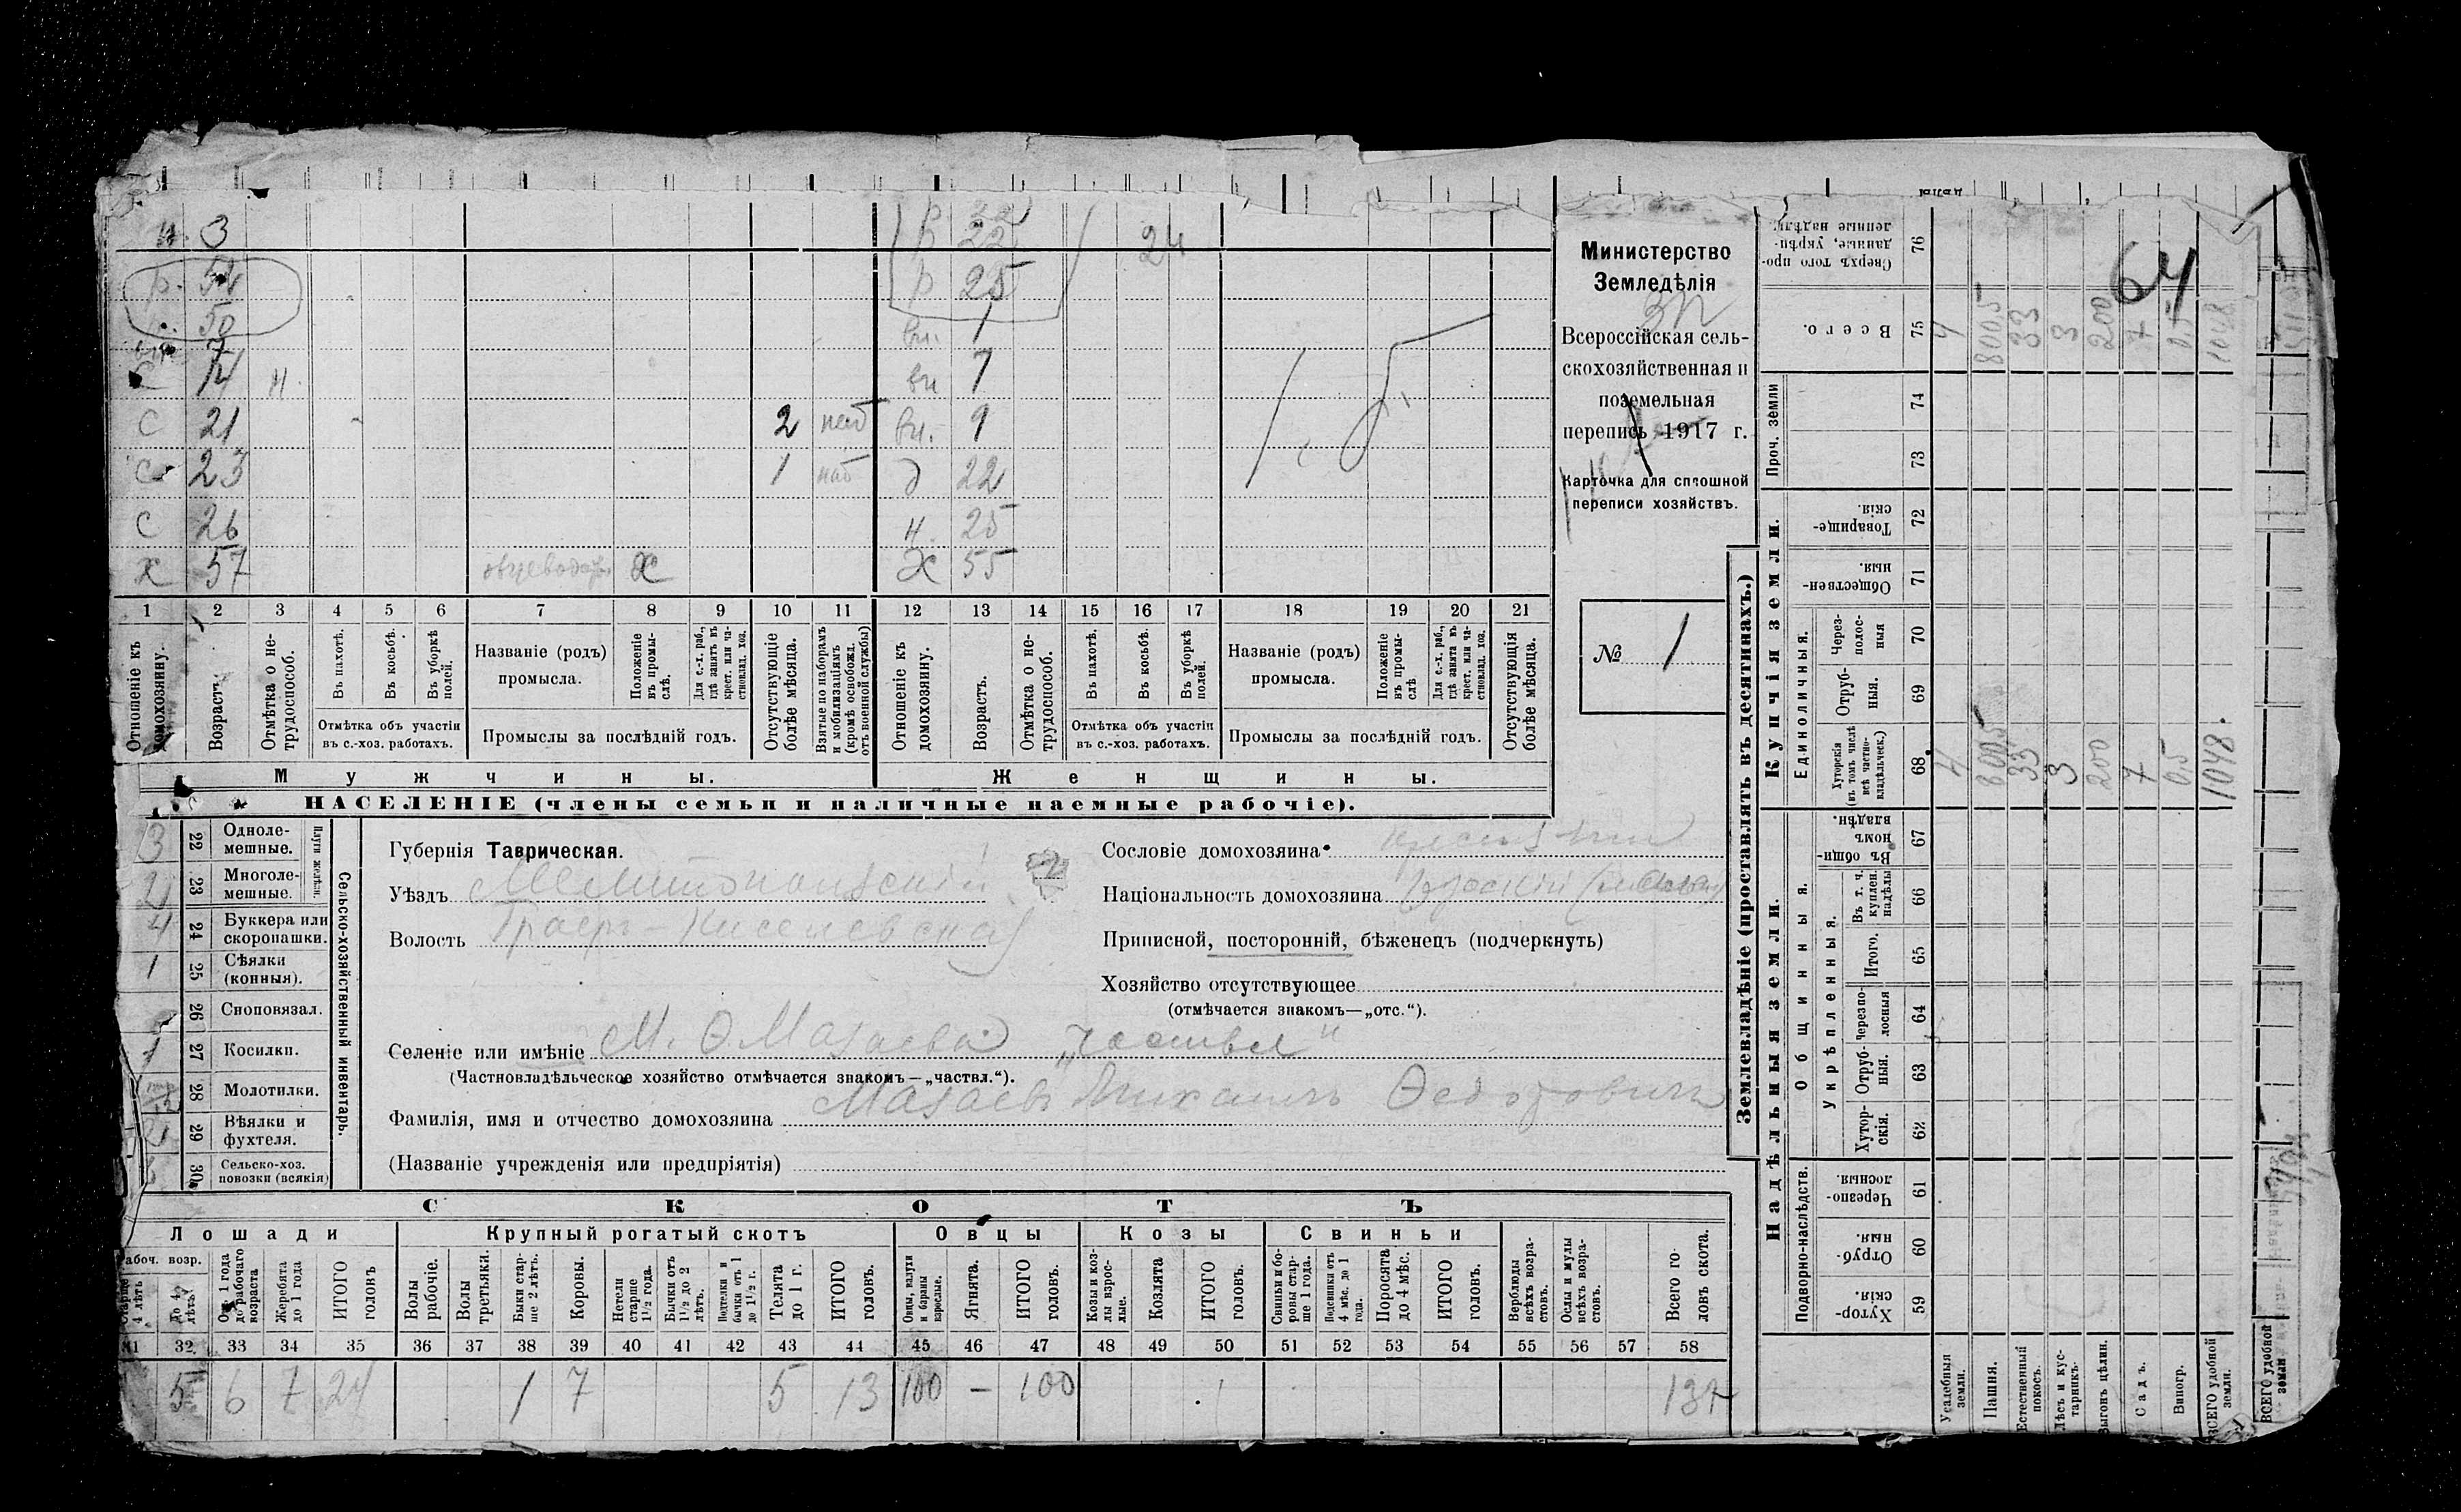 н. 3 р 22
р. 54 р 25 24
р. 50 вн. 1
вн. 7
С 14 н. вн 7
С 21 2 наб вн. 9
С 23 1 наб д 22
С 26 н. 25
х 57 овцеводство х х 55
1 2 3 4 5 6 7 8 9 10 11 12 13 14 15 16 17 18 19 20 21
Отношеніе къ домохозяину.
Возрастъ.
Отмѣтка о нетрудоспособ.
Въ пахотѣ.
Въ косьбѣ.
Въ уборкѣ полей.
Отмѣтка объ участіи въ с.-хоз. работахъ.
Названіе (родъ) промысла.
Положеніе въ промыслѣ.
Для с.-х. раб., гдѣ занятъ въ крест. или частновлад. хоз.
Промыслы за послѣдній годъ.
Отсутствующіе болѣе мѣсяца.
Взятые по наборамъ и мобилизаціямъ (кромѣ освобожд. отъ военной службы)
Отношеніе къ домохозяину.
Возрастъ.
Отмѣтка о нетрудоспособ.
Въ пахотѣ.
Въ косьбѣ.
Въ уборкѣ полей.
Отмѣтка объ участіи въ с.-хоз. работахъ.
Названіе (родъ) промысла.
Положеніе въ промыслѣ
Для с.-х. раб., гдѣ занята въ крест. или частновлад. хоз.
Промыслы за послѣдній годъ.
Отсутствующія болѣе мѣсяца.
Мужчины. Женщины.
НАСЕЛЕНІЕ (члены семьи и наличные наемные рабочіе).
Министерство
Земледѣлія
Всероссійская сель-
скохозяйственная и
поземельная
перепись 1917 г.
Карточка для сплошной
переписи хозяйствъ.
№ 1
3 22 Одноле-
мешные.
2 23 Многоле-
мешные.
Плуги желѣзн.
4 24 Буккера или
скоропашки.
1 25 Сѣялки
(конныя).
26 Сноповязал.
1 27 Косилки.
28 Молотилки.
29 Вѣялки и
фухтеля.
30 Сельско-хоз.
повозки (всякія)
Сельско-хозяйственный инвентарь.
Губернія Таврическая.
Уѣздъ Мелитопольскій
Волость Графск-Киселевская
Сословіе домохозяина крестьян
Національность домохозяина русскій
Приписной, посторонній, бѣженецъ (подчеркнуть)
Хозяйство отсутствующее
(отмѣчается знакомъ—„отс.“).
Селеніе или имѣніе М. Ѳ. Мазаева „частвл“
(Частновладѣльческое хозяйство отмѣчается знакомъ—„частвл.“).
Фамилія, имя и отчество домохозяина Мазаевъ Михаилъ Ѳедоровичъ
(Названіе учрежденія или предпріятія)
СКОТЪ
Лошади Крупный рогатый скотъ Овцы Козы Свиньи
Рабоч. возр.
Старше 4 лѣтъ
До 4 лѣтъ.
От. 1 года до рабочаго возраста
Жеребята до 1 года
ИТОГО головъ
Волы рабочіе.
Волы третьяки.
Быки старше 2 лѣтъ.
Коровы.
Нетели старше 1½ года.
Бычки отъ 1½ до 2 лѣтъ.
Подтелки и бычки отъ 1 до 1½ г.
Телята до 1 г.
ИТОГО головъ.
Овцы, валухи и бараны взрослые.
Ягнята.
ИТОГО головъ.
Козы и козлы взрослые.
Козлята
ИТОГО головъ.
Свиньи и боровы старше 1 года.
Подсвинки отъ 4 мѣс. до 1 года.
Поросята до 4 мѣс.
ИТОГО головъ.
Верблюды всѣхъ возрастовъ.
Ослы и мулы всѣхъ возрастовъ.
Всего головъ скота.
31 32 33 34 35 36 37 38 39 40 41 42 43 44 45 46 47 48 49 50 51 52 53 54 55 56 57 58
5 6 7 24 1 7 5 13 100 — 100 137
Землевладѣніе (проставлять въ десятинахъ.)
64
Сверхъ того проданные, укрѣпленные надѣлы. 76
Всего. 75 4 800,5 33 3 200 7 0,5 1048
Проч. земли 74
73
Купчія земли.
Товарищескія. 72
Общественныя. 71
Единоличныя.
Черезполосныя 70
Отрубныя. 69
Хуторскія (въ томъ числѣ всѣ частновладѣльческ.) 68 4 800,5 33 3 200 7 0,5 1048.
Надѣльныя земли.
Общинныя.
Въ общинномъ владѣн. 67
Укрѣпленныя.
Въ т. ч. куплен. надѣлы 66
Итого. 65
Черезполосныя 64
Отрубныя. 63
Хуторскія. 62
Подворно-наслѣдств.
Черезполосныя. 61
Отрубныя. 60
Хуторскія. 59
Усадебныя земли.
Пашня.
Естественный покосъ.
Лѣсъ и кустарникъ.
Выгонъ цѣлин.
Садъ.
Виногр.
ВСЕГО удобной земли.
ВСЕГО удобной земли